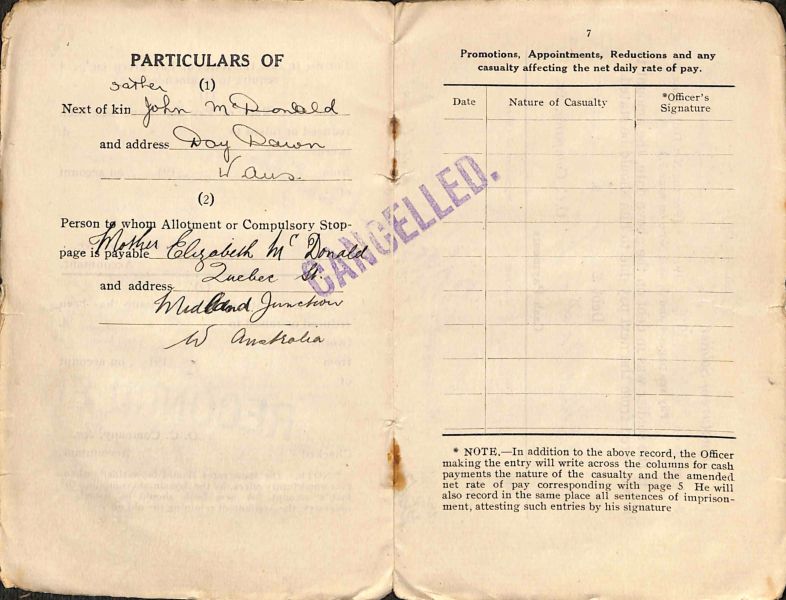 PARTICULARS OF
Father (1)
Next of kin John McDonald
and address Day Dawn
W Aus.
(2)
Person to whom Allotment or Compulsory Stop-
page is payable Mother Elizabeth McDonald
and address Quebec St.
Midland Junction
W Australia
CANCELLED.
7
Promotions, Appointments, Reductions and any
casualty affecting the net daily rate of pay.
Date Nature of Casualty *Officer's
Signature
* NOTE.—In addition to the above record, the Officer
making the entry will write across the columns for cash
payments the nature of the casualty and the amended
net rate of pay corresponding with page 5 He will
also record in the same place all sentences of imprison-
ment, attesting such entries by his signature